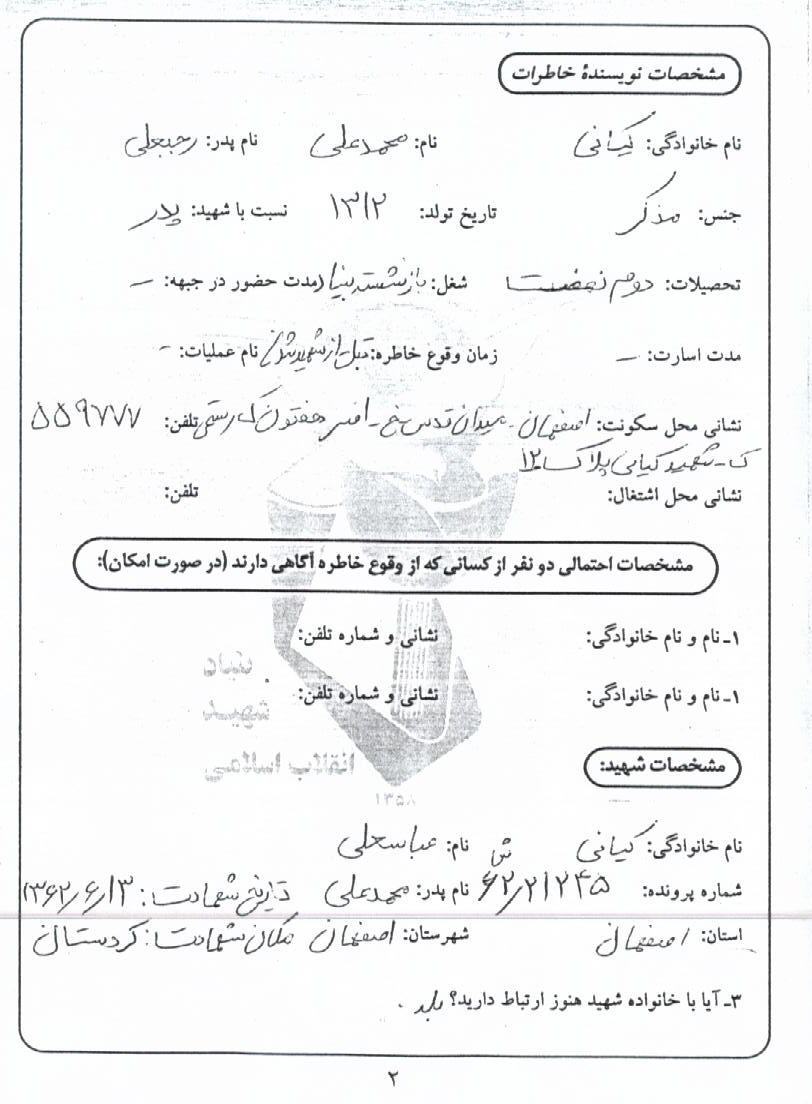 مشخصات نویسندهٔ خاطرات
نام خانوادگی: کیانی نام: محمدعلی نام پدر: رجبعلی
جنس: مذکر تاریخ تولد: ۱۳۱۲ نسبت با شهید: پدر
تحصیلات: دوم نهضت شغل: بازنشسته مدت حضور در جبهه: –
مدت اسارت: – زمان وقوع خاطره: قبل از شهید شدن نام عملیات: –
نشانی محل سکونت: اصفهان - میدان قدس خ - هفتون ک رستمی تلفن: ۵۵۹۷۷۷
ک - شهید کیانی پلاک ۱۲
نشانی محل اشتغال: تلفن:
مشخصات احتمالی دو نفر از کسانی که از وقوع خاطره آگاهی دارند (در صورت امکان):
۱ـ نام و نام خانوادگی: نشانی و شماره تلفن:
۱ـ نام و نام خانوادگی: نشانی و شماره تلفن:
بنیاد
شهید
انقلاب اسلامی
۱۳۵۸
مشخصات شهید:
نام خانوادگی: کیانی نام: عباسعلی
شماره پرونده: ش ۶۲/۲۱۲۴۵ نام پدر: محمدعلی تاریخ شهادت: ۱۳۶۲/۶/۳
استان: اصفهان شهرستان: اصفهان مکان شهادت: کردستان
۳ـ آیا با خانواده شهید هنوز ارتباط دارید؟ بله .
۲